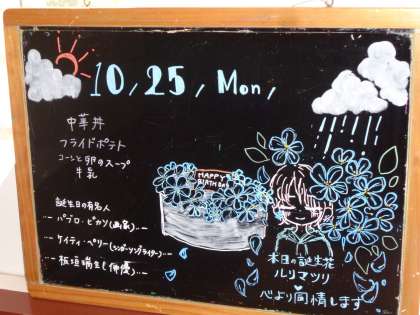 10, 25, Mon,
中華丼
フライドポテト
コーンと卵のスープ
牛乳
HAPPY
BIRTHDAY
誕生日の有名人
--- パブロ・ピカソ(画家)---
--- ケイティ・ペリー(シンガーソングライター)---
--- 板垣瑞生(俳優)---
本日の誕生花
ルリマツリ
心より同情します